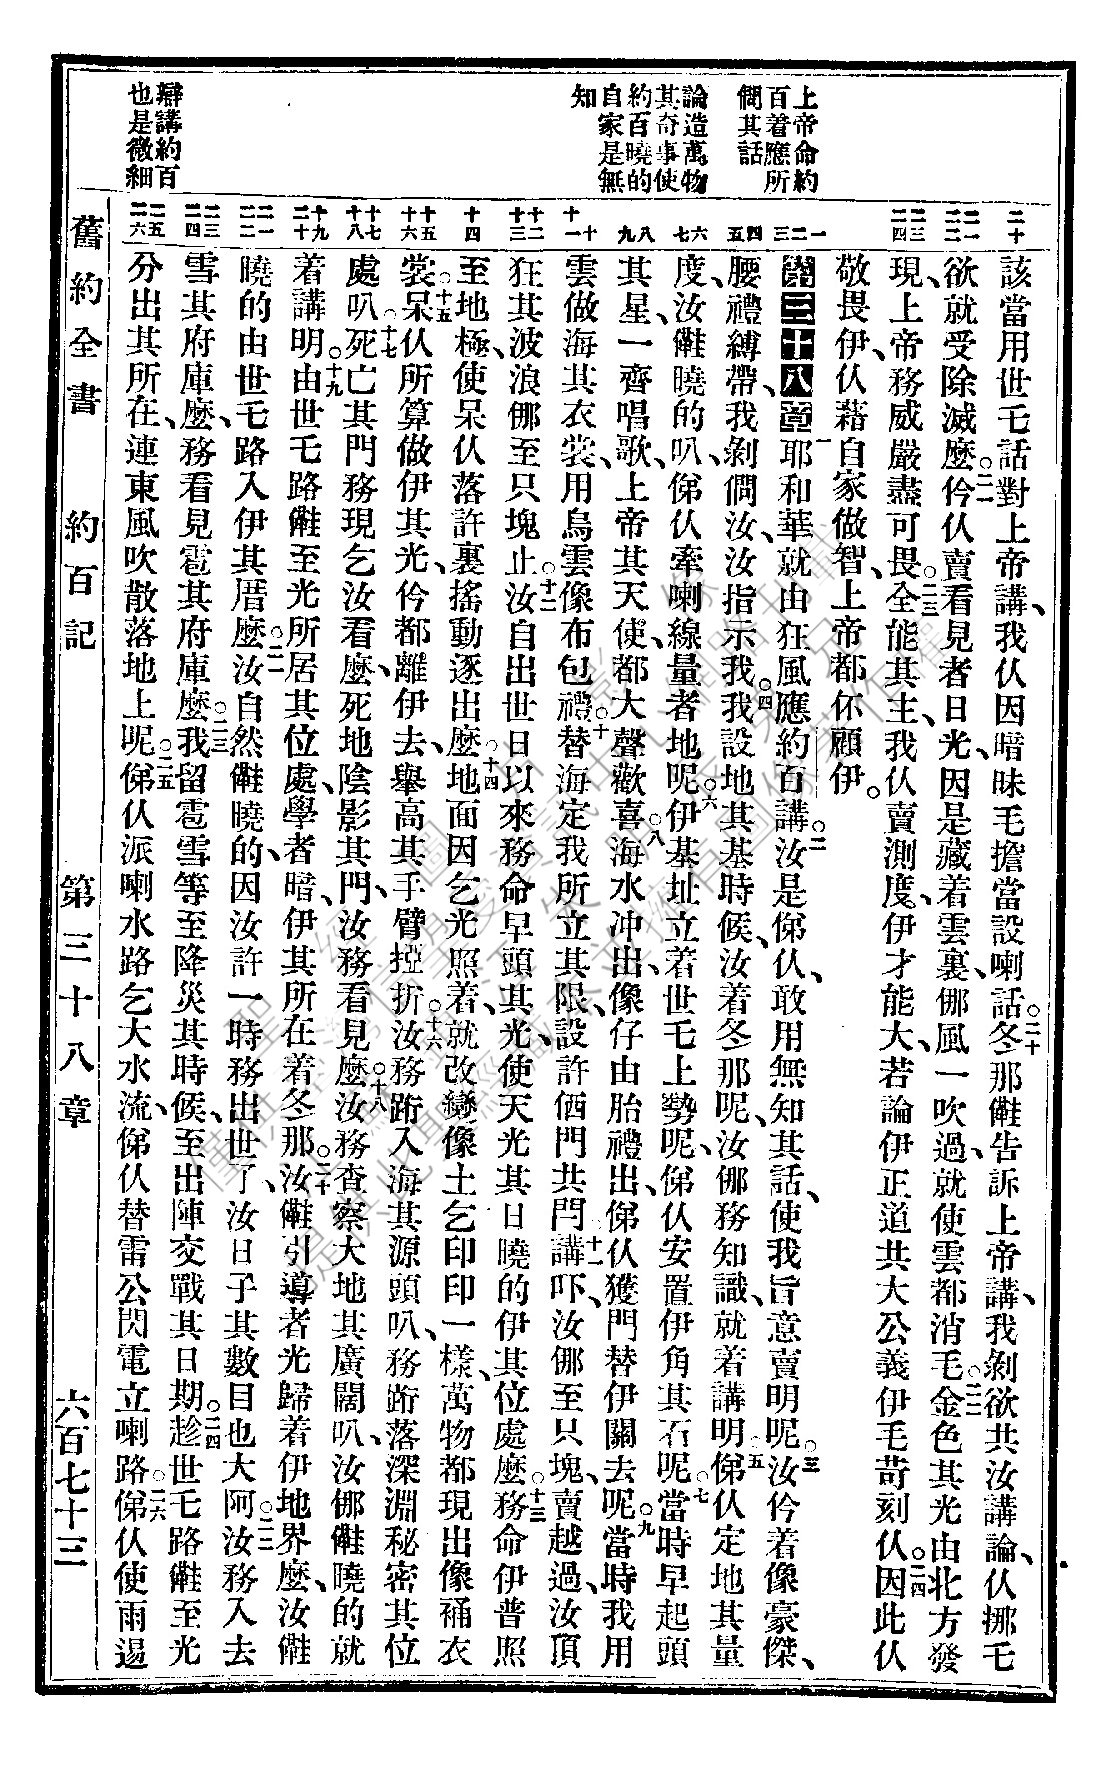 上帝命約
百着應所
僴其話
論造萬物
其奇事使
約百曉的
自家是無
知
辯講約百
也是微細
二十
二一
二二
二三
二四
一
二
三
四
五
六
七
八
九
十
十一
十二
十三
十四
十五
十六
十七
十八
十九
二十
二一
二二
二三
二四
二五
二六
該當用世乇話對上帝講、我仈因暗昧毛擔當設喇話。二十冬那𣍐告訴上帝講、我剝欲共汝講論、仈挪乇
欲就受除滅麽。二一仱仈賣看見者日光、因是藏着雲裏、㑚風一吹過、就使雲都消毛。二二金色其光由北方發
現、上帝務威嚴盡可畏。二三全能其主、我仈賣測度、伊才能大、若論伊正道共大公義、伊毛苛刻仈。二四因此仈
敬畏伊、仈藉自家做智、上帝都伓顧伊。
第三十八章一耶和華就由狂風應約百講。二汝是俤仈、敢用無知其話、使我旨意賣明呢。三汝仱着像豪傑、
腰禮縛帶、我剝僴汝、汝指示我。四我設地其基時候、汝着冬那呢、汝㑚務知識、就着講明。五俤仈定地其量
度、汝𣍐曉的叭、俤仈牽喇線量者地呢。六伊基址立着世乇上勢呢、俤仈安置伊角其石呢。七當時早起頭
其星、一齊唱歌、上帝其天使、都大聲歡喜。八海水冲出、像仔由胎禮出、俤仈獲門替伊關去呢。九當時我用
雲做海其衣裳、用烏雲像布包禮。十替海定我所立其限、設許価門共閂。十一講吓、汝㑚至只塊、賣越過、汝頂
狂其波浪㑚至只塊止。十二汝自出世日以來、務命早頭其光、使天光其日曉的伊其位處麽。十三務命伊普照
至地極、使呆仈落許裏搖動逐出麽。十四地面因乞光照着、就改變像土乞印印一樣、萬物都現出像䘼衣
裳。十五呆仈所算做伊其光、仱都離伊去、舉高其手臂掗折。十六汝務䟓入海其源頭叭、務䟓落深淵秘密其位
處叭。十七死亡其門務現乞汝看麽、死地陰影其門、汝務看見麽。十八汝務查察大地其廣闊叭、汝㑚𣍐曉的就
着講明。十九由世乇路𣍐至光所居其位處、學者暗、伊其所在着冬那。二十汝𣍐引導者光歸着伊地界麽、汝𣍐
曉的由世乇路入伊其厝麽。二一汝自然𣍐曉的、因汝許一時務出世了、汝日子其數目也大阿。二二汝務入去
雪其府庫麽、務看見雹其府庫麽。二三我留雹雪等至降災其時候、至出陣交戰其日期。二四趁世乇路𣍐至光
分出其所在、連東風吹散落地上呢。二五俤仈派喇水路乞大水流、俤仈替雷公閃電立喇路。二六俤仈使雨逿
舊約全書　約百記　第三十八章　六百七十三